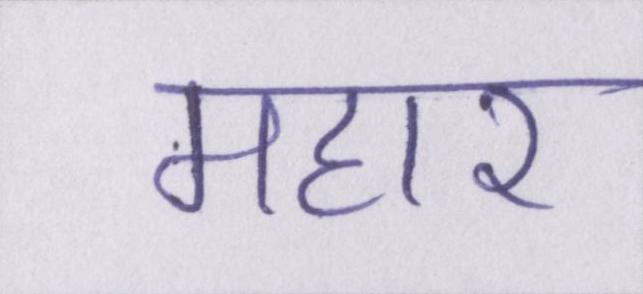 महार